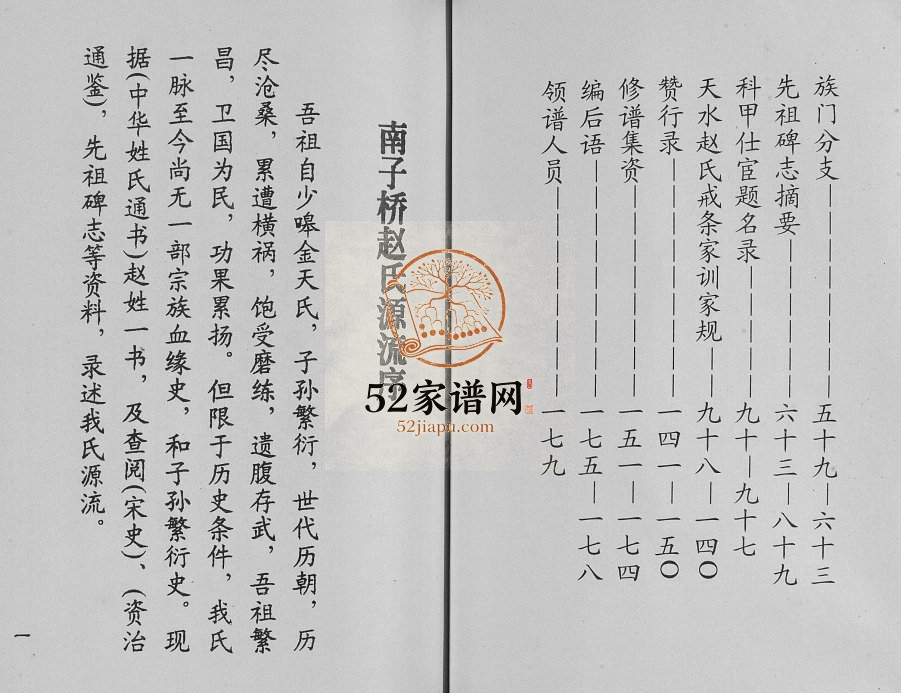 族门分支——————五十九—六十三
先祖碑志摘要—————六十三—八十九
科甲仕宦题名录————九十—九十七
天水赵氏戒条家训家规——九十八—一四〇
赞行录———————一四一—一五〇
修谱集资——————一五一—一七四
编后语———————一七五—一七八
领谱人员——————一七九
南子桥赵氏源流序
吾祖自少嗥金天氏，子孙繁衍，世代历朝，历
尽沧桑，累遭横祸，饱受磨练，遗腹存武，吾祖繁
昌，卫国为民，功果累扬。但限于历史条件，我氏
一脉至今尚无一部宗族血缘史，和子孙繁衍史。现
据(中华姓氏通书)赵姓一书，及查阅(宋史)、(资治
通鉴)，先祖碑志等资料，录述我氏源流。
一
52家谱网
52jiapu.com